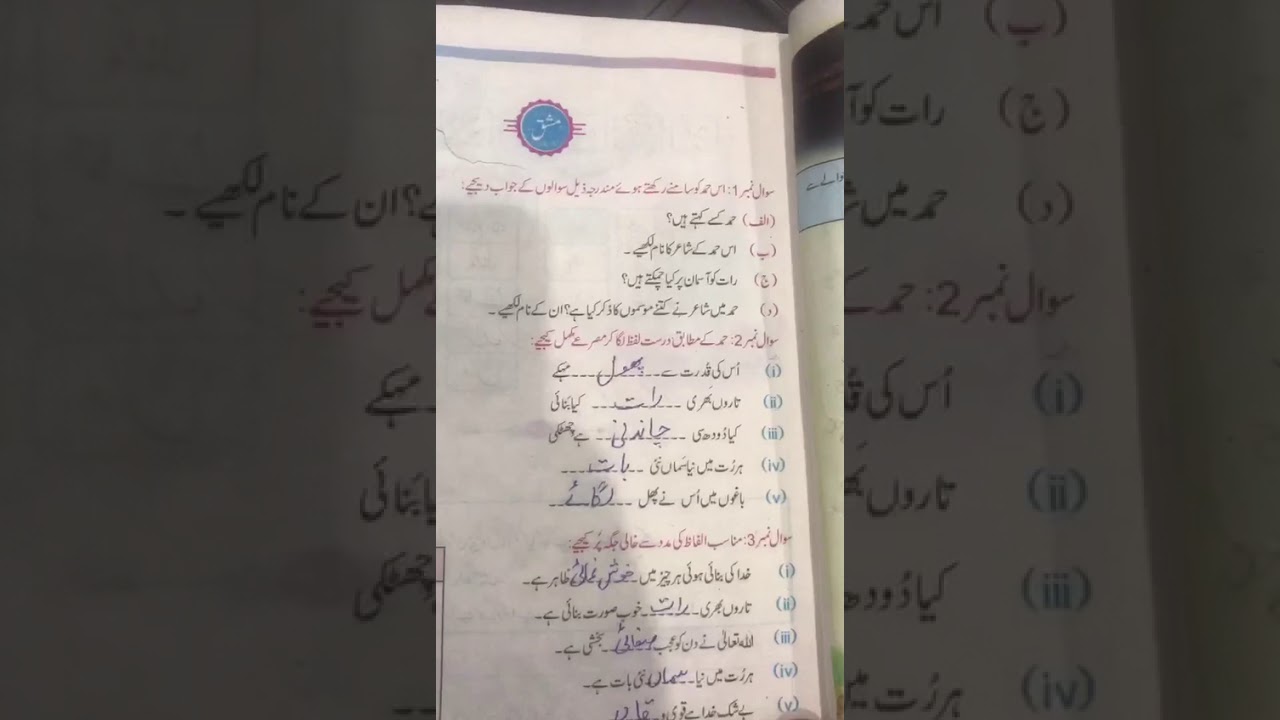 مشق
سوال نمبر 1: اس حمد کو سامنے رکھتے ہوئے مندرجہ ذیل سوالوں کے جواب دیجیے:
(الف) حمد کسے کہتے ہیں؟
(ب) اس حمد کے شاعر کا نام لکھیے۔
(ج) رات کو آسمان پر کیا چمکتے ہیں؟
(د) حمد میں شاعر نے کتنے موسموں کا ذکر کیا ہے؟ ان کے نام لکھیے۔
سوال نمبر 2: حمد کے مطابق درست لفظ لگا کر مصرعے مکمل کیجیے:
(i) اُس کی قُدرت سے پھول مہکے
(ii) تاروں بھری رات کیا بنائی
(iii) کیا دُودھ سی چاندنی ہے چھٹکی
(iv) ہر رُت میں نیا سَماں نئی بات
(v) باغوں میں اُس نے پھل لگائے
سوال نمبر 3: مناسب الفاظ کی مدد سے خالی جگہ پُر کیجیے:
(i) خدا کی بنائی ہوئی ہر چیز میں خوش نمائی ظاہر ہے۔
(ii) تاروں بھری رات خوب صورت بنائی ہے۔
(iii) اللہ تعالیٰ نے دن کو عجب صفائی بخشی ہے۔
(iv) ہر رُت میں نیا سماں نئی بات ہے۔
(v) بے شک خدا ہے قوی و قادر
والے سے